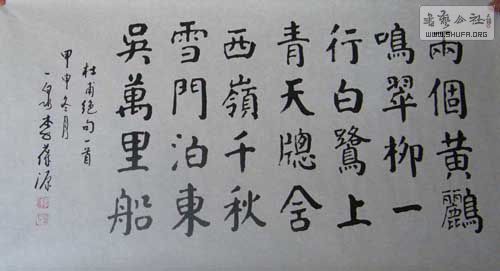 兩個黃鸝
鳴翠柳一
行白鷺上
青天牕含
西嶺千秋
雪門泊東
吳萬里船
杜甫絕句一首
甲申冬月
书艺公社
WWW.SHUFA.ORG